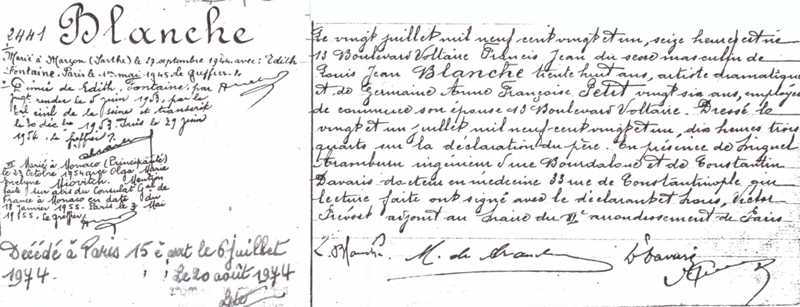 2441 Blanche
Marié à Marçon (Sarthe) le 17 septembre 1942 avec Edith
Fontaine. Paris le 1er mai 1945. Le Greffier.
Divorcé de Edith Fontaine par
jugt rendu le 5 juin 1953, par le
civil de la Seine et transcrit
le 30 décbre 1953. Paris le 29 juin
1954. Le Greffier.
II Marié à Monaco (Principauté)
le 23 Octobre 1954 avec Olga Marie
Evelyne Miovitch. Mention
faite sur avis du Consulat Gal de
France à Monaco en date du
18 janvier 1955. Paris le 3 Mai
1955. Le Greffier
Décédé à Paris 15è arrt le 6 juillet
1974. Le 20 août 1974
Le vingt juillet mil neuf cent vingt et un, seize heures est né
13 Boulevard Voltaire Francis Jean du sexe masculin de
Louis Jean Blanche trente huit ans, artiste dramatique
et de Germaine Anne Françoise Petit vingt six ans, employée
de commerce son épouse 13 Boulevard Voltaire. Dressé le
vingt et un juillet mil neuf cent vingt et un, dix heures trois
quarts sur la déclaration du père. En présence de
ingénieur rue Bourdaloue et de Constantin
Davaris docteur en médecine 33 rue de Constantinople qui
lecture faite ont signé avec le déclarant et Nous, Victor
Prévost adjoint au maire du XIe arrondissement de Paris
L. Blanche M. de Dr Davaris